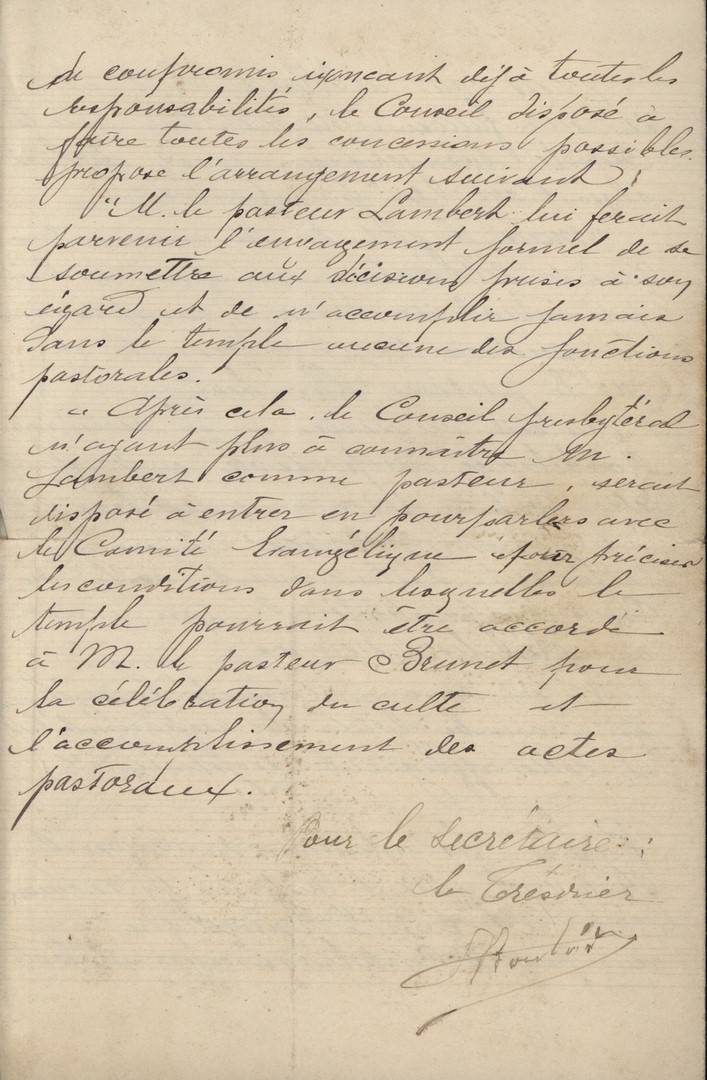 de compromis énonçant déjà toutes les
responsabilités, le Conseil disposé à
faire toutes les concessions possibles
propose l'arrangement suivant :
"M. le pasteur Lambert lui ferait
parvenir l'engagement formel de se
soumettre aux décisions prises à son
égard et de n'accomplir jamais
dans le temple aucune des fonctions
pastorales.
" Après cela, le Conseil presbytéral
n'ayant plus à connaître M.
Lambert comme pasteur, serait
disposé à entrer en pourparlers avec
le Comité Evangélique pour préciser
les conditions dans lesquelles le
temple pourrait être accordé
à M. le pasteur Brunet pour
la célébration du culte et
l'accomplissement des actes
pastoraux.
Pour le Secrétaire :
le Trésorier